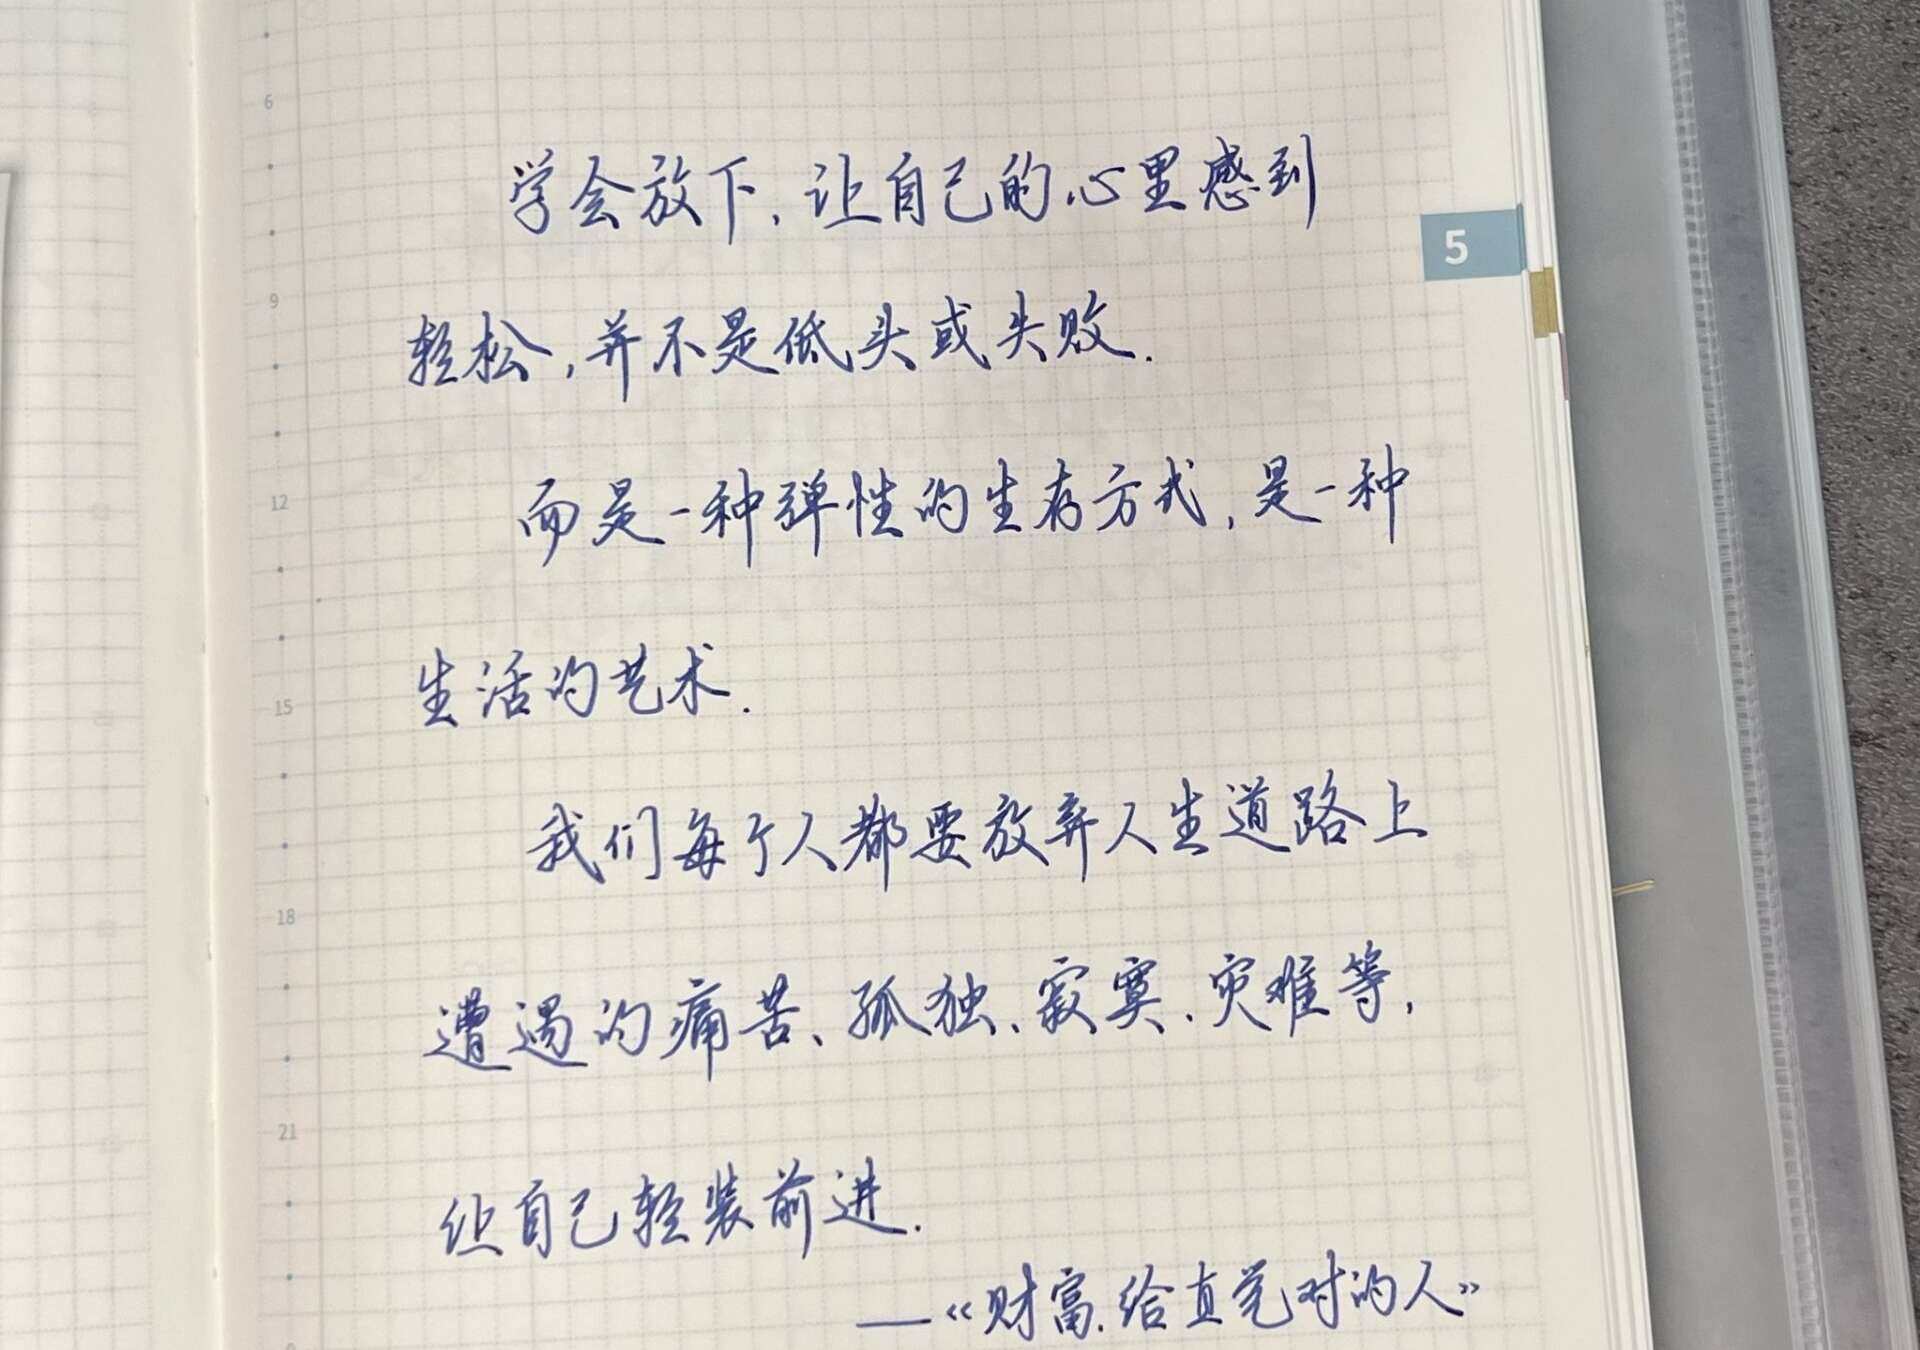 6
学会放下,让自己的心里感到
5
9
轻松,并不是低头或失败.
12
而是一种弹性的生存方式,是一种
15
生活的艺术.
我们每个人都要放弃人生道路上
18
遭遇的痛苦、孤独、寂寞、灾难等,
21
让自己轻装前进.
——《财富.给直觉对的人》